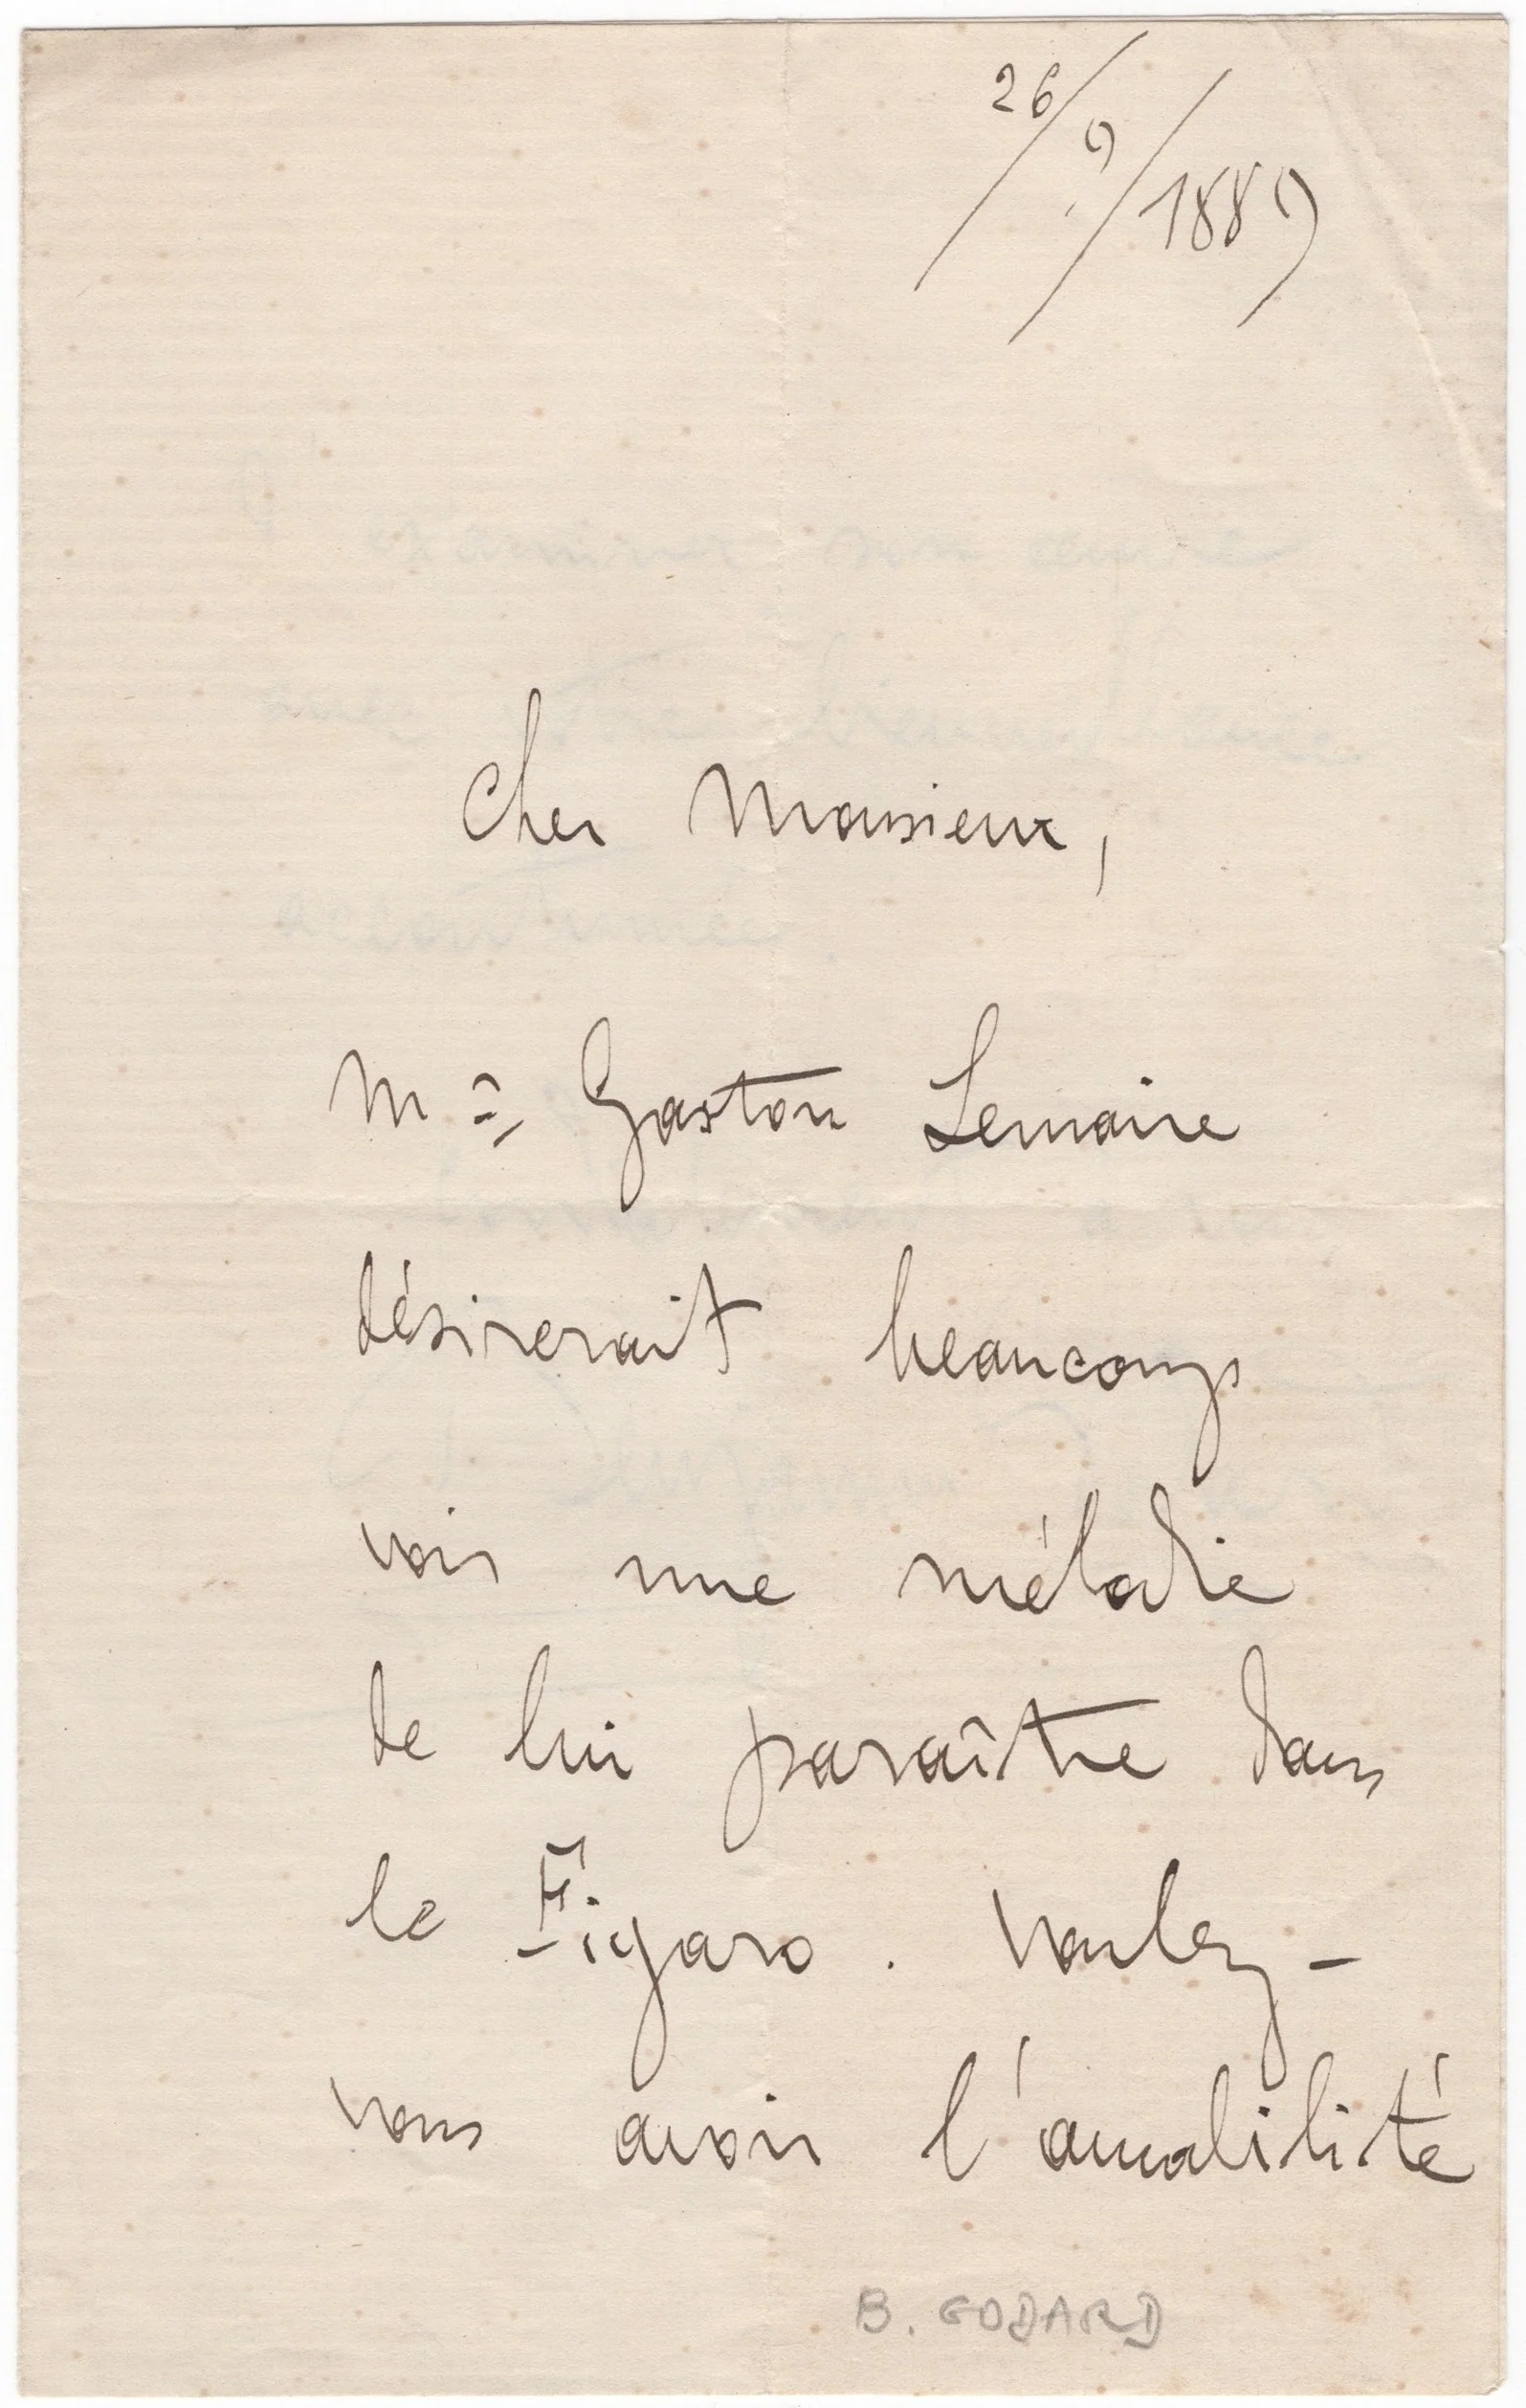 26/9/1889
Cher Monsieur,
Mr Gaston Lemaire
désirerait beaucoup
voir une mélodie
de lui paraître dans
le Figaro. Voulez-
vous avoir l'amabilité
B. GODARD